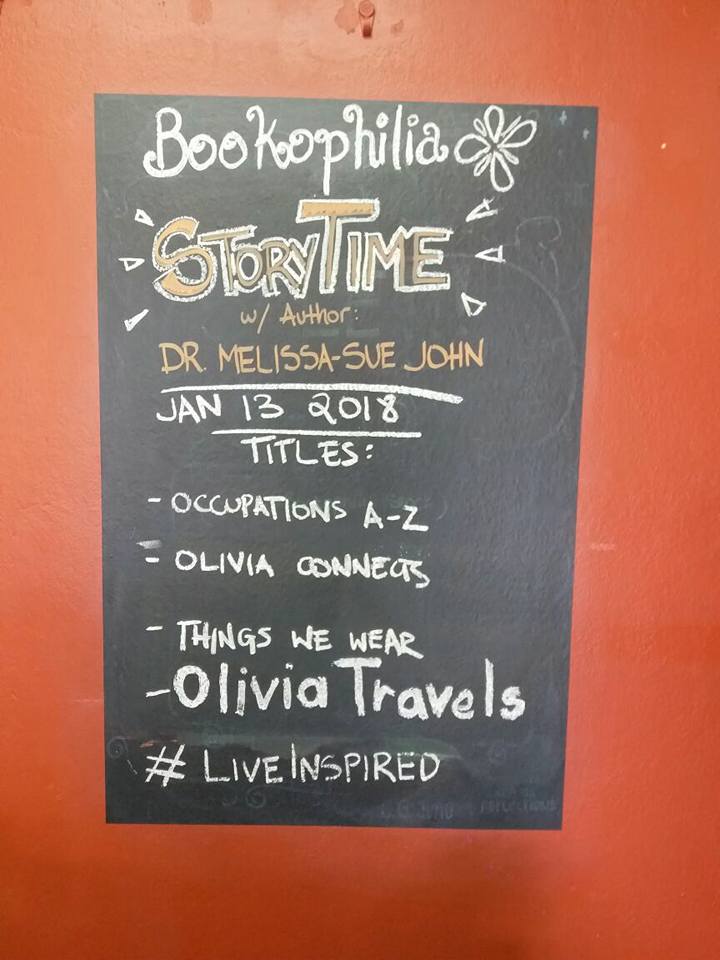 Bookophilia
STORYTIME
w/ Author:
DR. MELISSA-SUE JOHN
JAN 13 2018
TITLES:
- OCCUPATIONS A-Z
- OLIVIA CONNECTS
- THINGS WE WEAR
- Olivia Travels
# LIVEINSPIRED